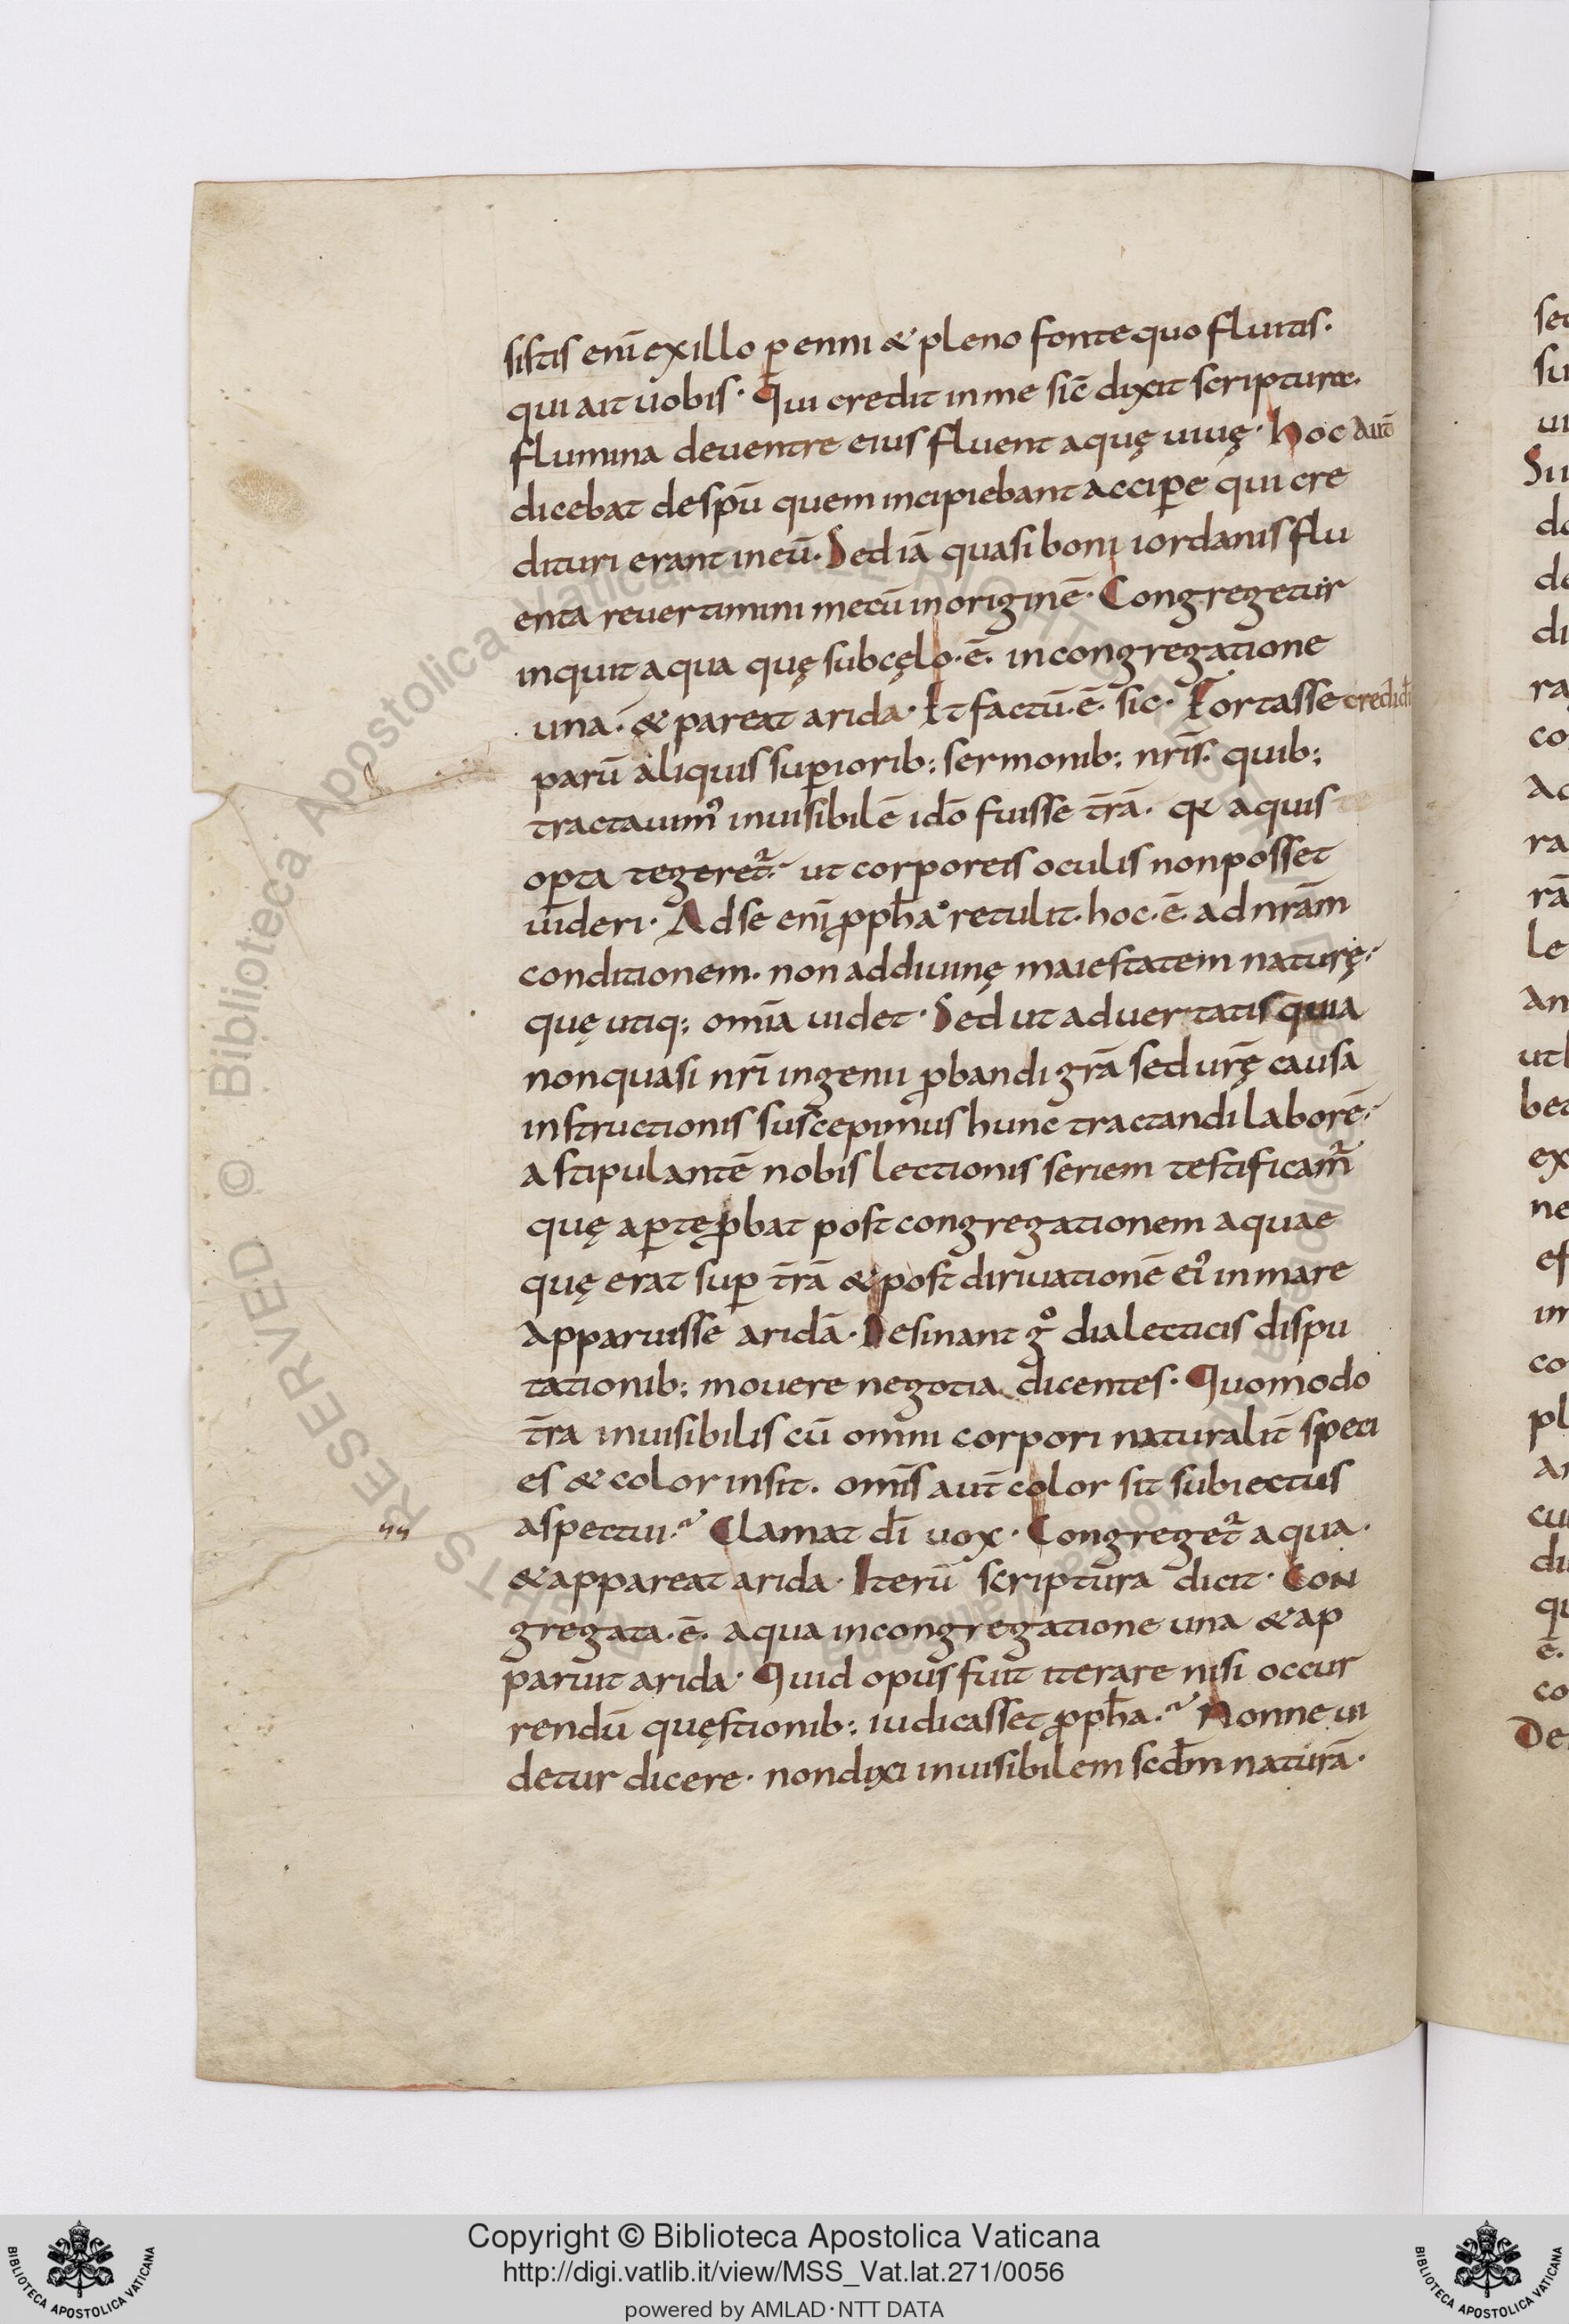 sistis eni̅ ex illo ꝑenni & pleno fonte quo fluitis·
qui ait uobis· Qui credit in me sic̅ dixit scriptura·
flumina de uentre eius fluent aquę uiuę· hoc aut̅
dicebat de sp̅u quem incipiebant acciꝑe qui cre
dituri erant in eu̅· Sed ia̅ quasi boni iordanis flu
enta reuertimini mecu̅ in origine̅· Congregetur
inquit aqua quę sub cęlo·e̅· in congregatione
una·& pareat arida· Et factu̅·e̅· sic· Fortasse credidi
paru̅ aliquis suꝑiorib; sermonib; nr̅is· quib;
tractauim᾽ inuisibile̅ ido̅ fuisse t̅ra̅· qd̅ aquis
oꝑta tegeret᾽· ut corporeis oculis non posset
uideri· Ad se eni̅ ꝓph̅a retulit· hoc·e̅· ad nr̅am
conditionem· non ad diuinę maiestatem naturę·
quę utiq; omi̅a uidet· Sed ut aduertatis quia
non quasi nr̅i ingenii ꝓbandi gr̅a sed ur̅ę causa
instructionis suscepimus hunc tractandi labore̅·
astipulante̅ nobis lectionis seriem testificam᾽
quę aꝑte ꝓbat post congregationem aquae
quę erat suꝑ t̅ra̅ & post diriuatione̅ ei᾽ in mare
apparuisse arida̅· Desinant gͦ dialecticis dispu
tationib; mouere negotia dicentes· Quomodo
t̅ra inuisibilis cu̅ omni corpori naturalit̅ speci
es & color insit· omi̅s aut̅ color sit subiectus
aspectui· Clamat di̅ uox· Congreget᾽ aqua·
& appareat arida· Iteru̅ scriptura dicit· CoN
gregata·e̅· aqua in congregatione una & ap
paruit arida· Quid opus fuit iterare nisi occur
rendu̅ quęstionib; iudicasset ꝓph̅a· Nonne ui
detur dicere· non dixi inuisibilem scd̅m natura̅·
Copyright © Biblioteca Apostolica Vaticana
http://digi.vatlib.it/view/MSS_Vat.lat.271/0056
powered by AMLAD·NTT DATA
BIBLIOTECA APOSTOLICA VATICANA
BIBLIOTECA APOSTOLICA VATICANA